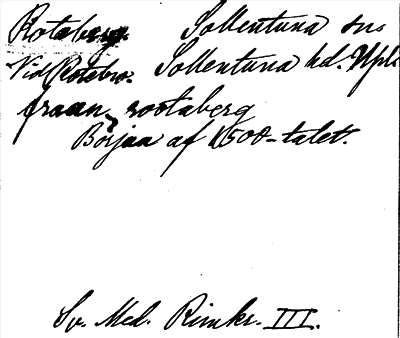 Rotaberg. Sollentuna sns
Vid Rotebro. Sollentuna hd. Upl.
fraan rootaberg
Början af 1500-talet.
Sv. Med. Rimkr. III.